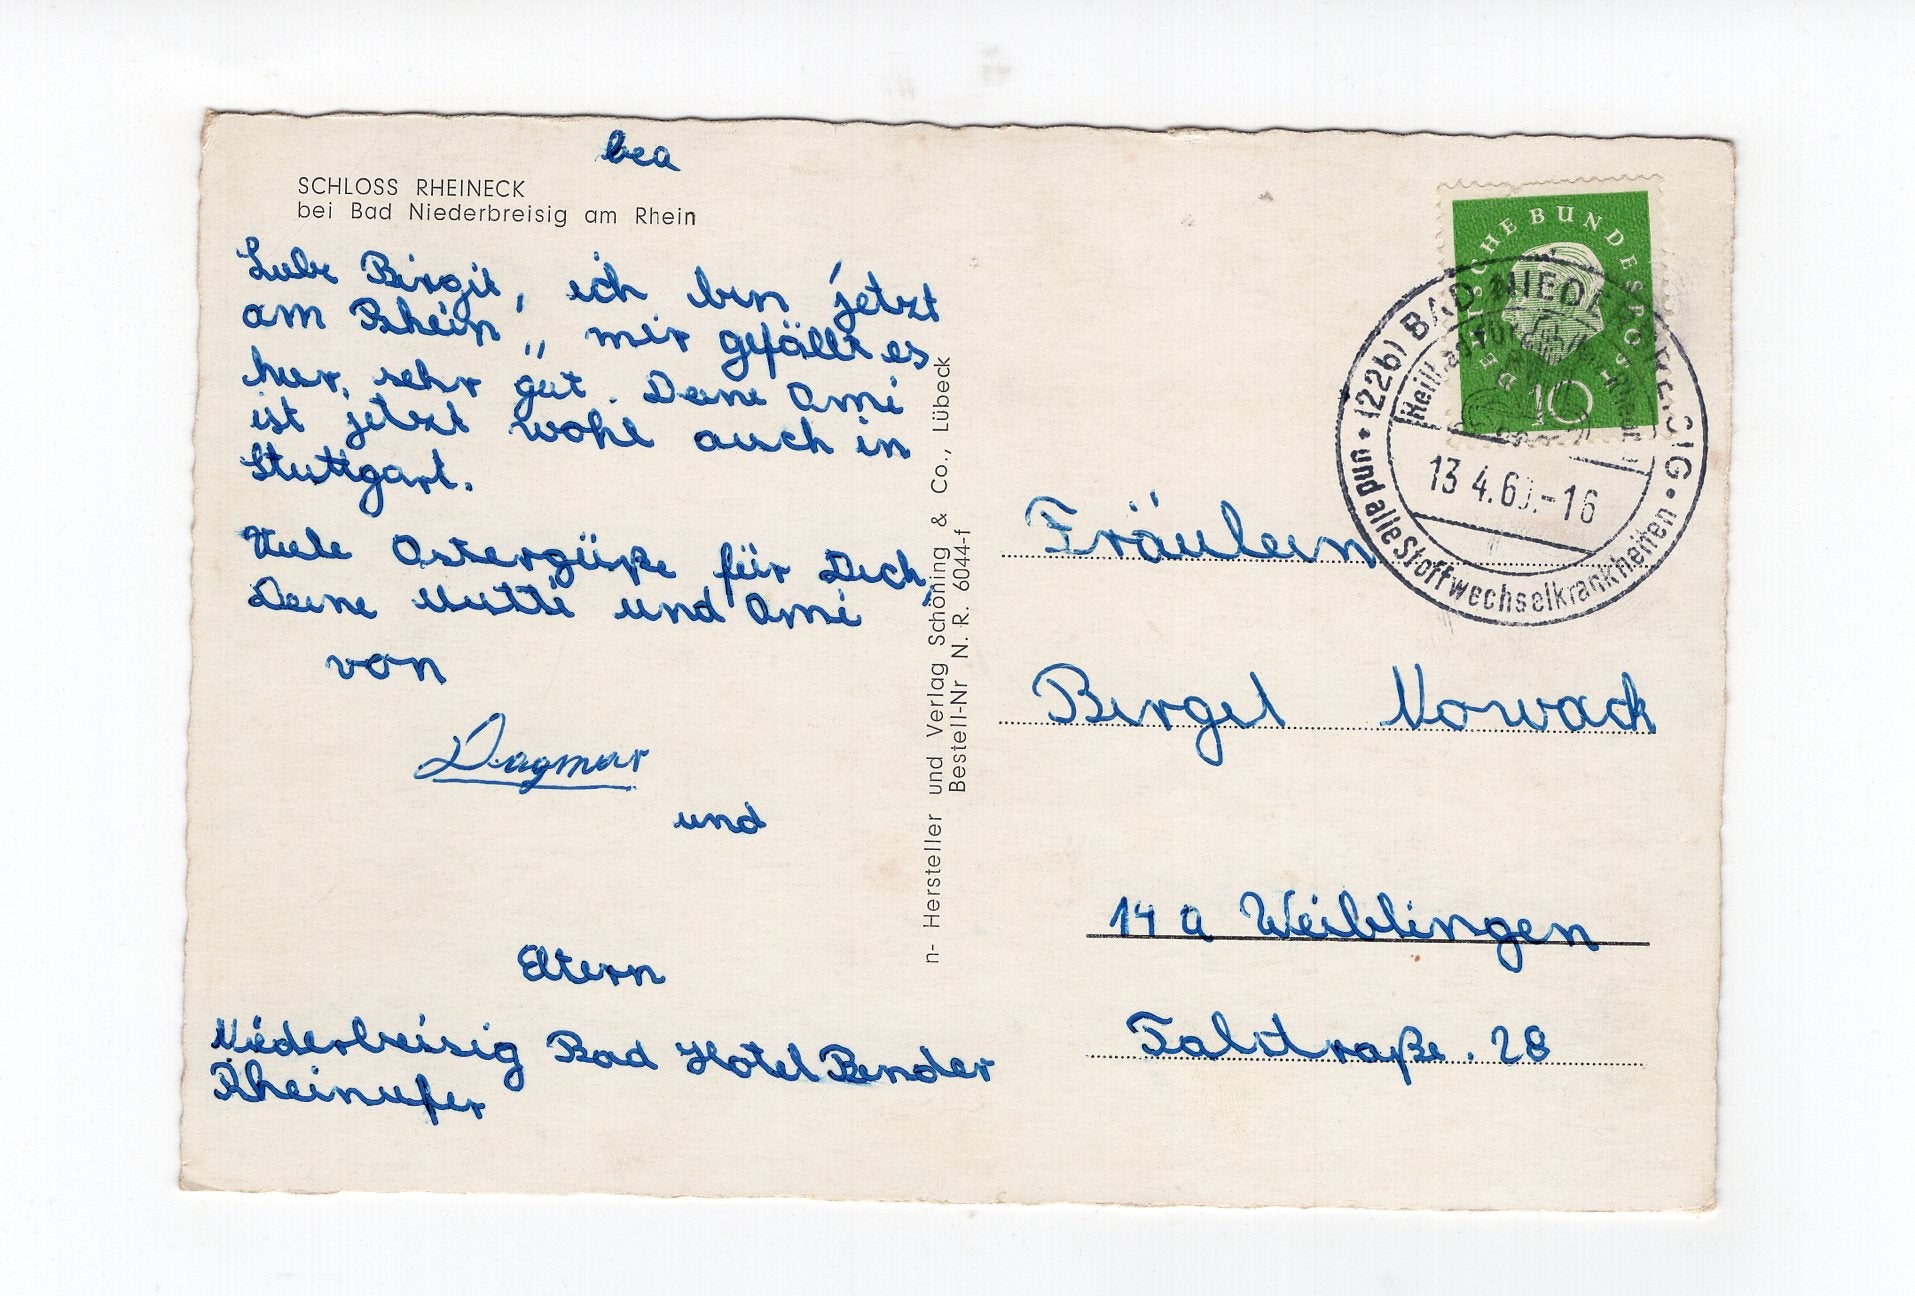 bea
SCHLOSS RHEINECK
bei Bad Niederbreisig am Rhein
Liebe Birgit, ich bin jetzt
am Rhein,, mir gefällt es
hier, sehr gut. Deine Omi
ist jetzt wohl auch in
Stuttgart.
Viele Ostergüße für Dich,
Deine Mutti und Omi
von
Dagmar
und
Eltern
Niederbreisig Bad Hotel Bender
Rheinufer
n- Hersteller und Verlag Schöning & Co., Lübeck
Bestell-Nr N. R. 6044-f
DEUTSCHE BUNDESPOST
10
(22b) BAD NIEDERBREISIG
13 4.60.-16
und alle Stoffwechselkrankheiten
Fräulein
Birgit Nowack
14 a Weiblingen
Talstraße. 28